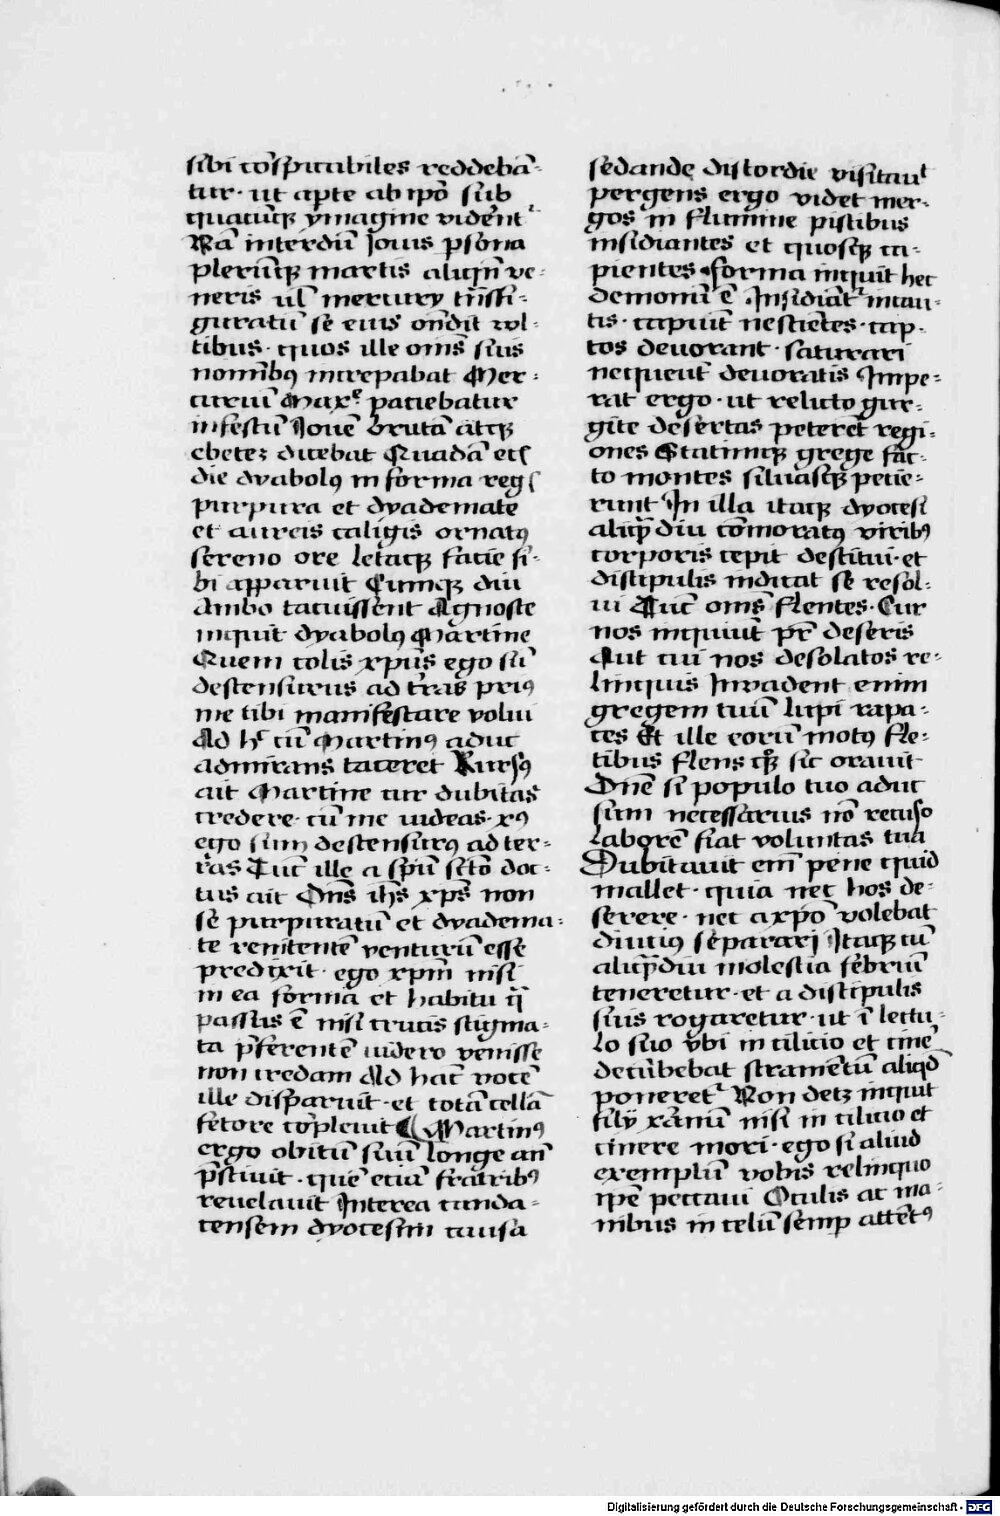 sibi cōspicabiles reddebā-
tur · ut apte ab ip̄o sub
quacūqꝫ ymagine vidēnt᷑
Nā interdū Jouis p̄sona
plerūqꝫ martis aliqn̄ ve-
neris ul̄ mercury trāssi-
guratū se eius on̄dit vul-
tibus · quos ille om̄s suis
nominibꝰ increpabat Mer-
curiū Maxᵉ paciebatur
infestū Jouē brutā atqꝫ
ebeteꝫ dicebat Quadā etſ
die dyabolꝰ in forma regſ
purpura et dyademate
et aureis caligis ornatꝰ
sereno ore letaqꝫ facie si-
bi apparuit Cumqꝫ diu
Ambo tacuissent Agnosce
inquit dyabolꝰ Martine
Quem colis xpūs ego sū
descensurus ad t̄ras priꝰ
me tibi manifestare volui
Ad h̄ cū Martinꝰ aduc
admirans taceret Rursꝰ
ait Martine cur dubitas
credere · cū me uideas · xꝰ
ego sum descensurꝰ ad ter-
ras Tūc ille a sp̄u scto doc-
tus ait Dn̄s ih̄s xp̄s non
se purpuratū et dyadema-
te renitentē venturū esse
predixit · ego xpm̄ nisi
in ea forma et habitu q̄
passus ē nisi crucis stigma-
ta p̄ferentē uidero venisse
non credam Ad hāc vocē
ille disparuit · et totā cellā
fetore cōpleuit ¶ Martinꝰ
ergo obitū suū longe an̄
p̄sciuit · quē eciā fratribꝰ
reuelauit Interea canda-
censem dyocesim causa
sedandę discordie visitauᵗ
pergens ergo videt mer-
gos in flumine piscibus
insidiantes et quosqꝫ ca-
pientes · forma inquit hec
demonū ē Insidiāt᷑ incau-
tis · capiūt nescientes · cap-
tos deuorant · saturari
nequeūt deuoratis Impe-
rat ergo · ut relicto gur-
gite desertas peterēt regi-
ones Statimqꝫ grege fac-
to montes siluasqꝫ petie-
runt In illa itaqꝫ dyocesi
aliqͣdiu cōmoratꝰ viribꝰ
corporis cepit destitui · et
discipulis indicat se resol-
ui Tūc om̄s flentes · Cur
nos inquiūt pr̄ deseris
Aut cui nos desolatos re-
linquis Inuadent enim
gregem tuū lupi rapa-
ces Et ille eorū motꝰ fle-
tibus flens qꝫ sic orauit
Dn̄e si populo tuo aduc
sum necessarius nō recuso
laborē fiat voluntas tua
Dubitauit em̄ pene quid
mallet · quia nec hos de-
serere · nec a xpō volebat
diutiꝰ separari Itaqꝫ cū
aliqͣdiu molestia febriū
teneretur · et a discipulis
suis rogaretur · ut ī lectu-
lo suo vbi in cilicio et cinē
decūbebat stramentū aliqd̄
poneret᷑ Non decꝫ inquit
filij xānū nisi in cilicio et
cinere mori · ego si aliud
exemplū vobis relinquo
ip̄e peccaui Oculis ac ma-
nibus in celū semꝑ attētꝰ
Digitalisierung gefördert durch die Deutsche Forschungsgemeinschaft - DFG